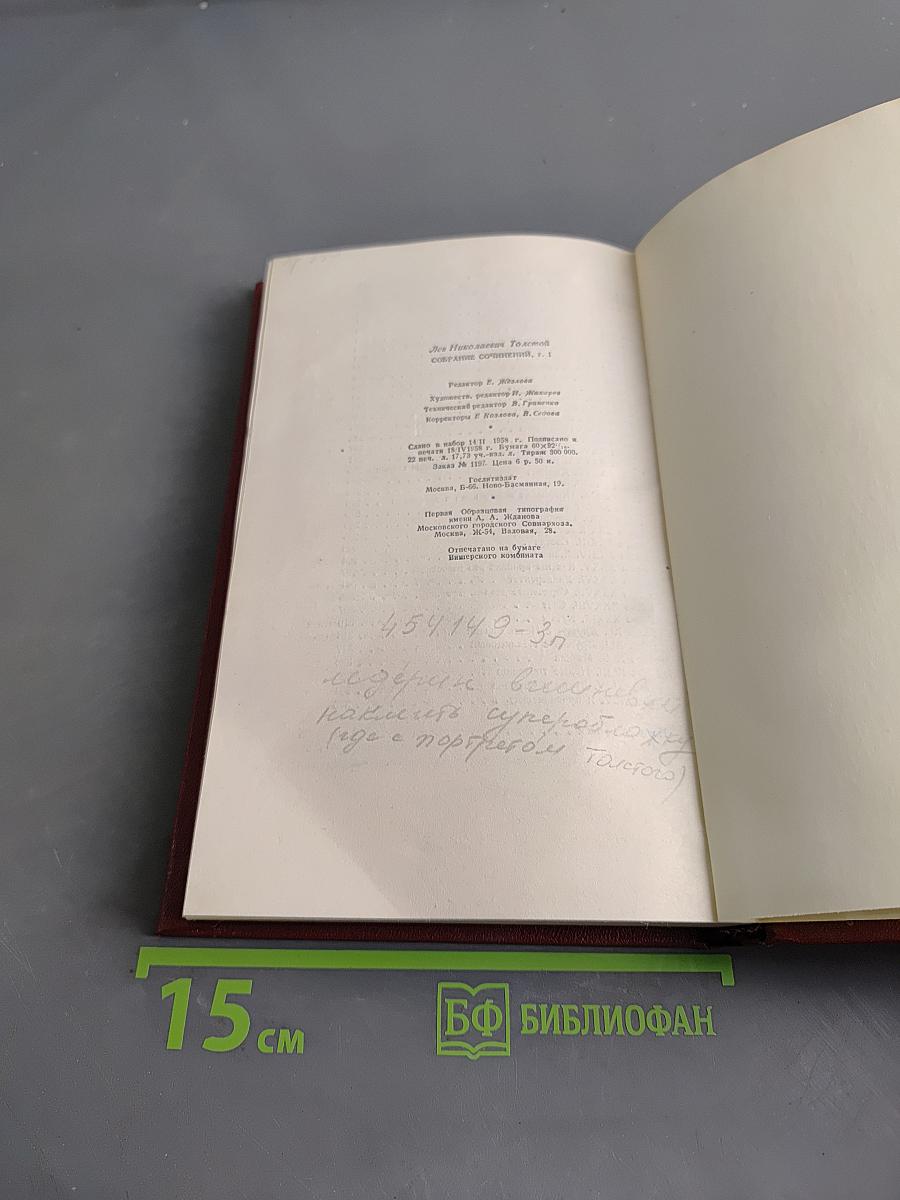 Лев Николаевич Толстой
СОБРАНИЕ СОЧИНЕНИЙ, т. 1
Редактор Е. Жезлова
Художеств. редактор И. Жихарев
Технический редактор В. Гриненко
Корректоры Г. Козлова, В. Седова
Сдано в набор 14/II 1958 г. Подписано к
печати 18/IV 1958 г. Бумага 60×92 1/16.
22 печ. л. 17,73 уч.-изд. л. Тираж 300 000.
Заказ № 1197. Цена 6 р. 50 к.
Гослитиздат
Москва, Б-66. Ново-Басманная, 19.
Первая Образцовая типография
имени А. А. Жданова
Московского городского Совнархоза.
Москва, Ж-54, Валовая, 28.
Отпечатано на бумаге
Вишерского комбината
454149-3п
ледерин вишневый
наклеить суперобложку
(где с портретом Толстого)
15 см
БФ БИБЛИОФАН